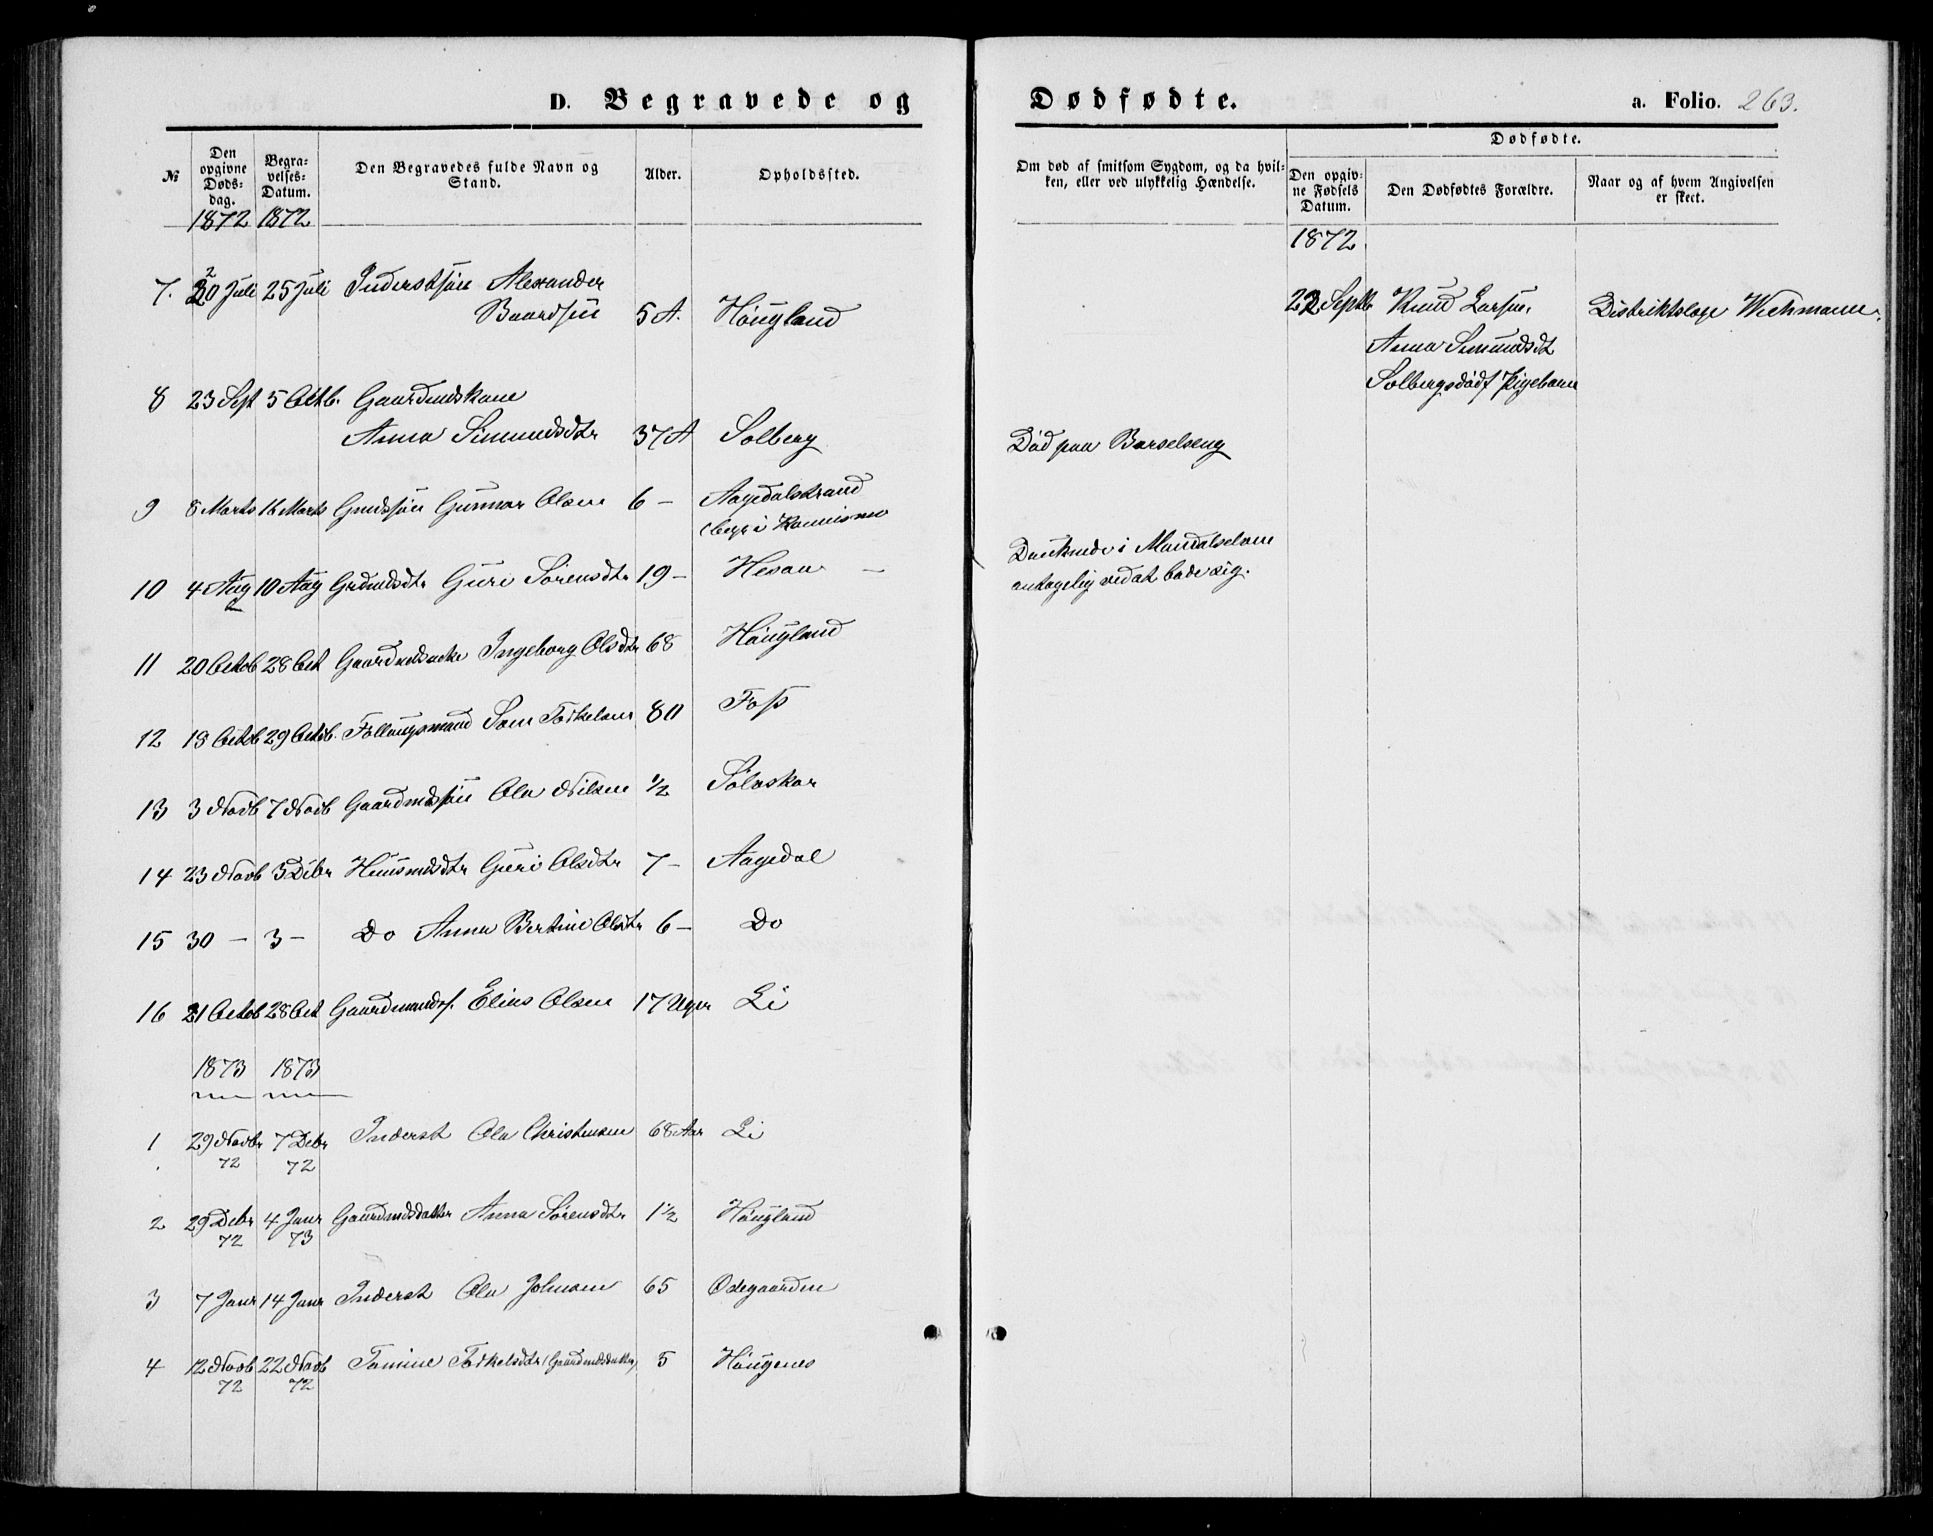 D. Begravede og Dødfødte. a. Folio. 263.
№ Den opgivne Døds-dag. Begra-velses-Datum. Den Begravedes fulde Navn og Stand. Alder. Opholdssted. Om død af smitsom Sygdom, og da hvil-ken, eller ved ulykkelig Hændelse. Dødfødte. Den opgiv-ne Fødsels Datum. Den Dødfødtes Forældre. Naar og af hvem Angivelsen er skeet.
1872 1872
1872.
7. 20 Juli 25 Juli Inderstsøn Alexander
Baardsen 5 A. Höugland
22 Septb Knud Larsen, Distriktslæge Wichmann.
Anna Simundsdt
Solberg dödf Pigebarn
8 23 Sept 5 Octb. Gaardmdskone
Anna Simundsdtr 37 A Solberg Död paa Barselseng
9 8 Marts 16 Marts Gmdssøn Gunnar Olsen 6 – Aagedalstrand
10 4 Aug 10 Aug Grdmdsdtr Guri Sörensdtr 19 – Hesaa – Druknede i Mandalselven
antagelig ved at bade sig.
11 20 Octob 28 Oct Gaardmdsenke Ingeborg Olsdtr 68 Höugland
12 19 Octob 29 Octob. Föllaugsmand Torkelsen 80 Foss
13 3 Novb 7 Novb Gaardmdssøn Ola Nilsen 1/2 Sölvskar
14 23 Novb 3 Debr Husmdsdtr Guri Olsdtr 7 – Aagedal
15 30 – 3 – Do Anna Bertine Olsdtr 6 – Do
16 21 Octob 28 Oct Gaardmands. Elias Olsen 17 Uger Li
1873 1873
1 29 Novbr 72 7 Debr 72 Inderst Ola Christensen 68 Aar Li
2 29 Debr 72 4 Janr 73 Gaardmdsdatter Anna Sörensdtr 1 1/2 Höugland
3 7 Janr 14 Janr Inderst Ola Johnsen 65 Ödegaarden
4 12 Novb 72 22 Novb 72 Tomine Torkelsdtr (Gaardmdsdatter) 5 Höugenes